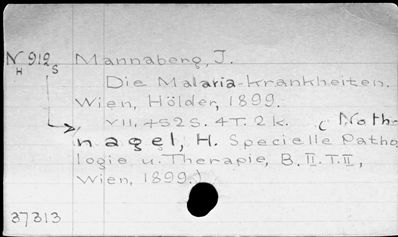 N 912 Mannaberg, J.
H S
Die Malaria-Krankheiten.
Wien, Hölder, 1899.
VII, 452 S. 4 T. 2 K. (Noth-
nagel, H. Specielle Patho
logie u. Therapie, B. II. T. II,
Wien, 1899.)
37313